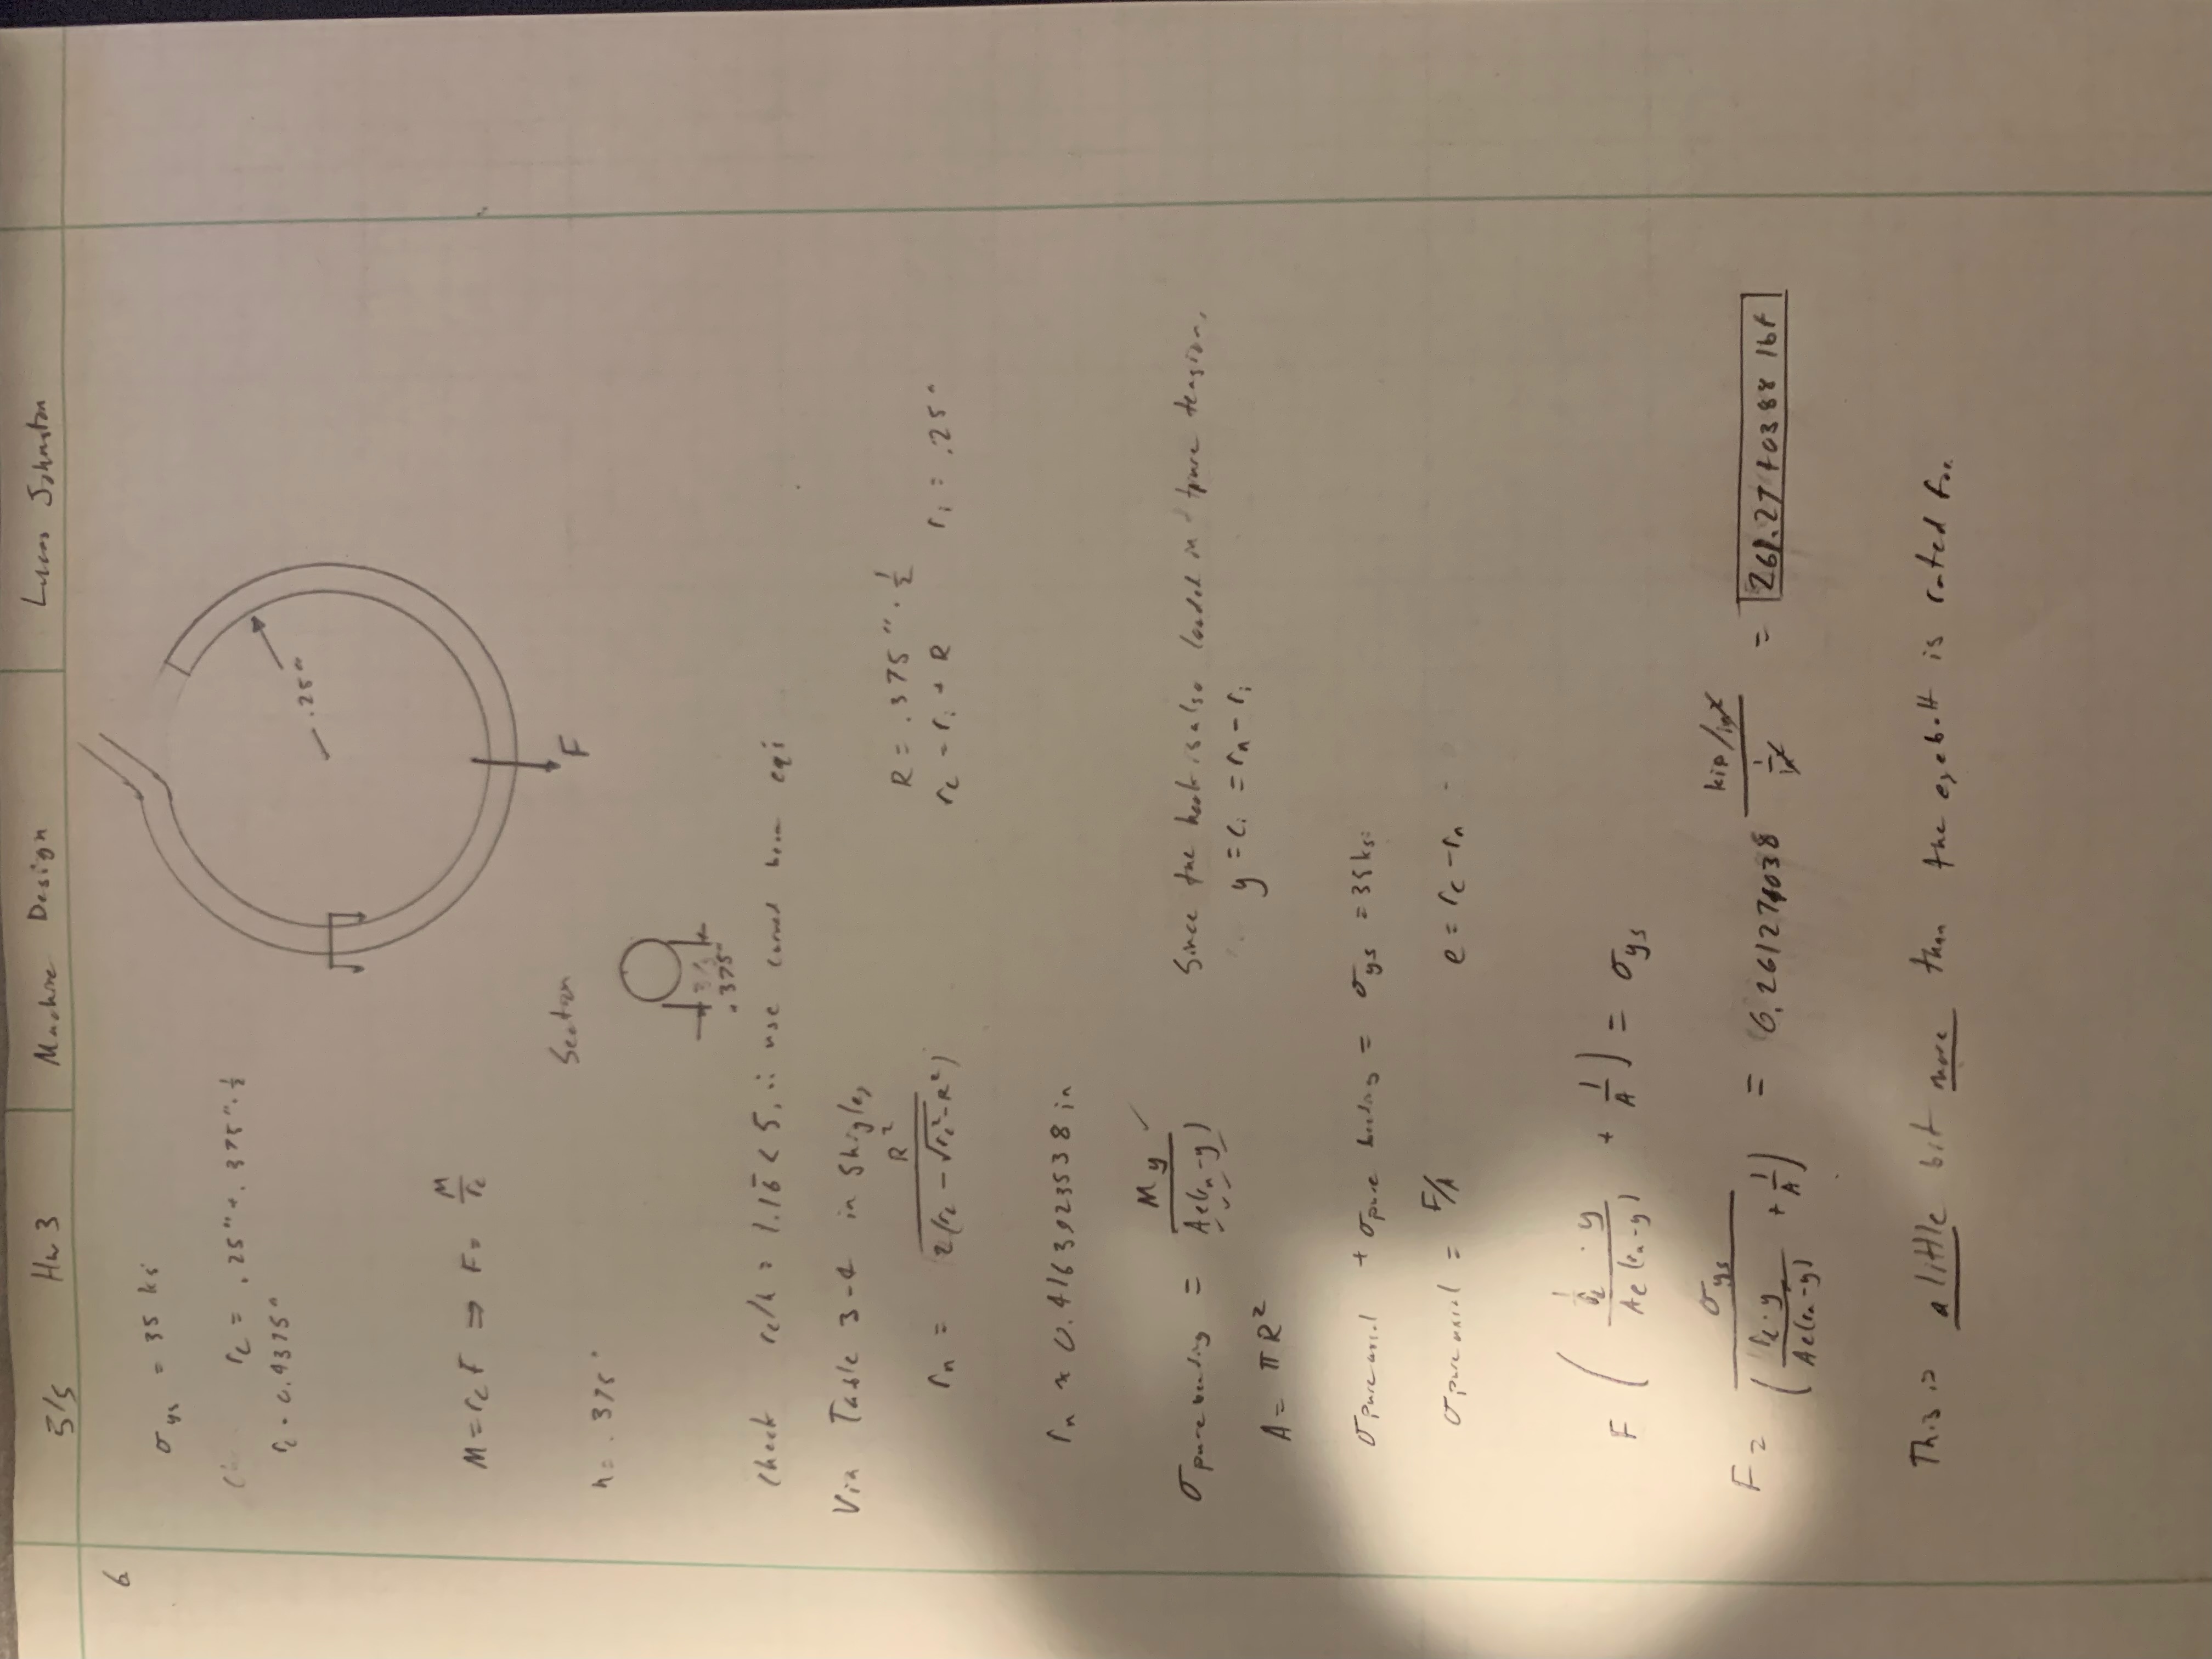 5/5 Hw 3 Machine Design Lucas Johnston
6
σys = 35 ksi
rc = .25" + .375" · 1/2
rc = 0.4375"
.25"
M = rc F ⇒ F = M/rc
F
Section
h = .375"
3/8
.375"
Check rc/h = 1.16̄ < 5, ∴ use curved beam eqs
Via Table 3-4 in Shigley
rn = R² / 2(rc - √(rc² - R²))
R = .375" · 1/2
rc = ri + R ri = .25"
rn ≈ 0.4163923538 in
σpure bending = My / Ae(rn - y) ✓
Since the hook is also loaded in pure tension,
y = ci = rn - ri
A = πR²
σpure axial + σpure bending = σys = 35 ksi
σpure axial = F/A e = rc - rn
F ( 1/rc · y / Ae(rn - y) + 1/A ) = σys
F = σys / ( rc · y / Ae(rn - y) + 1/A ) = 0.261274038 kip/in² / 1/in² = 261.2740388 lbf
This is a little bit more than the eyebolt is rated for.